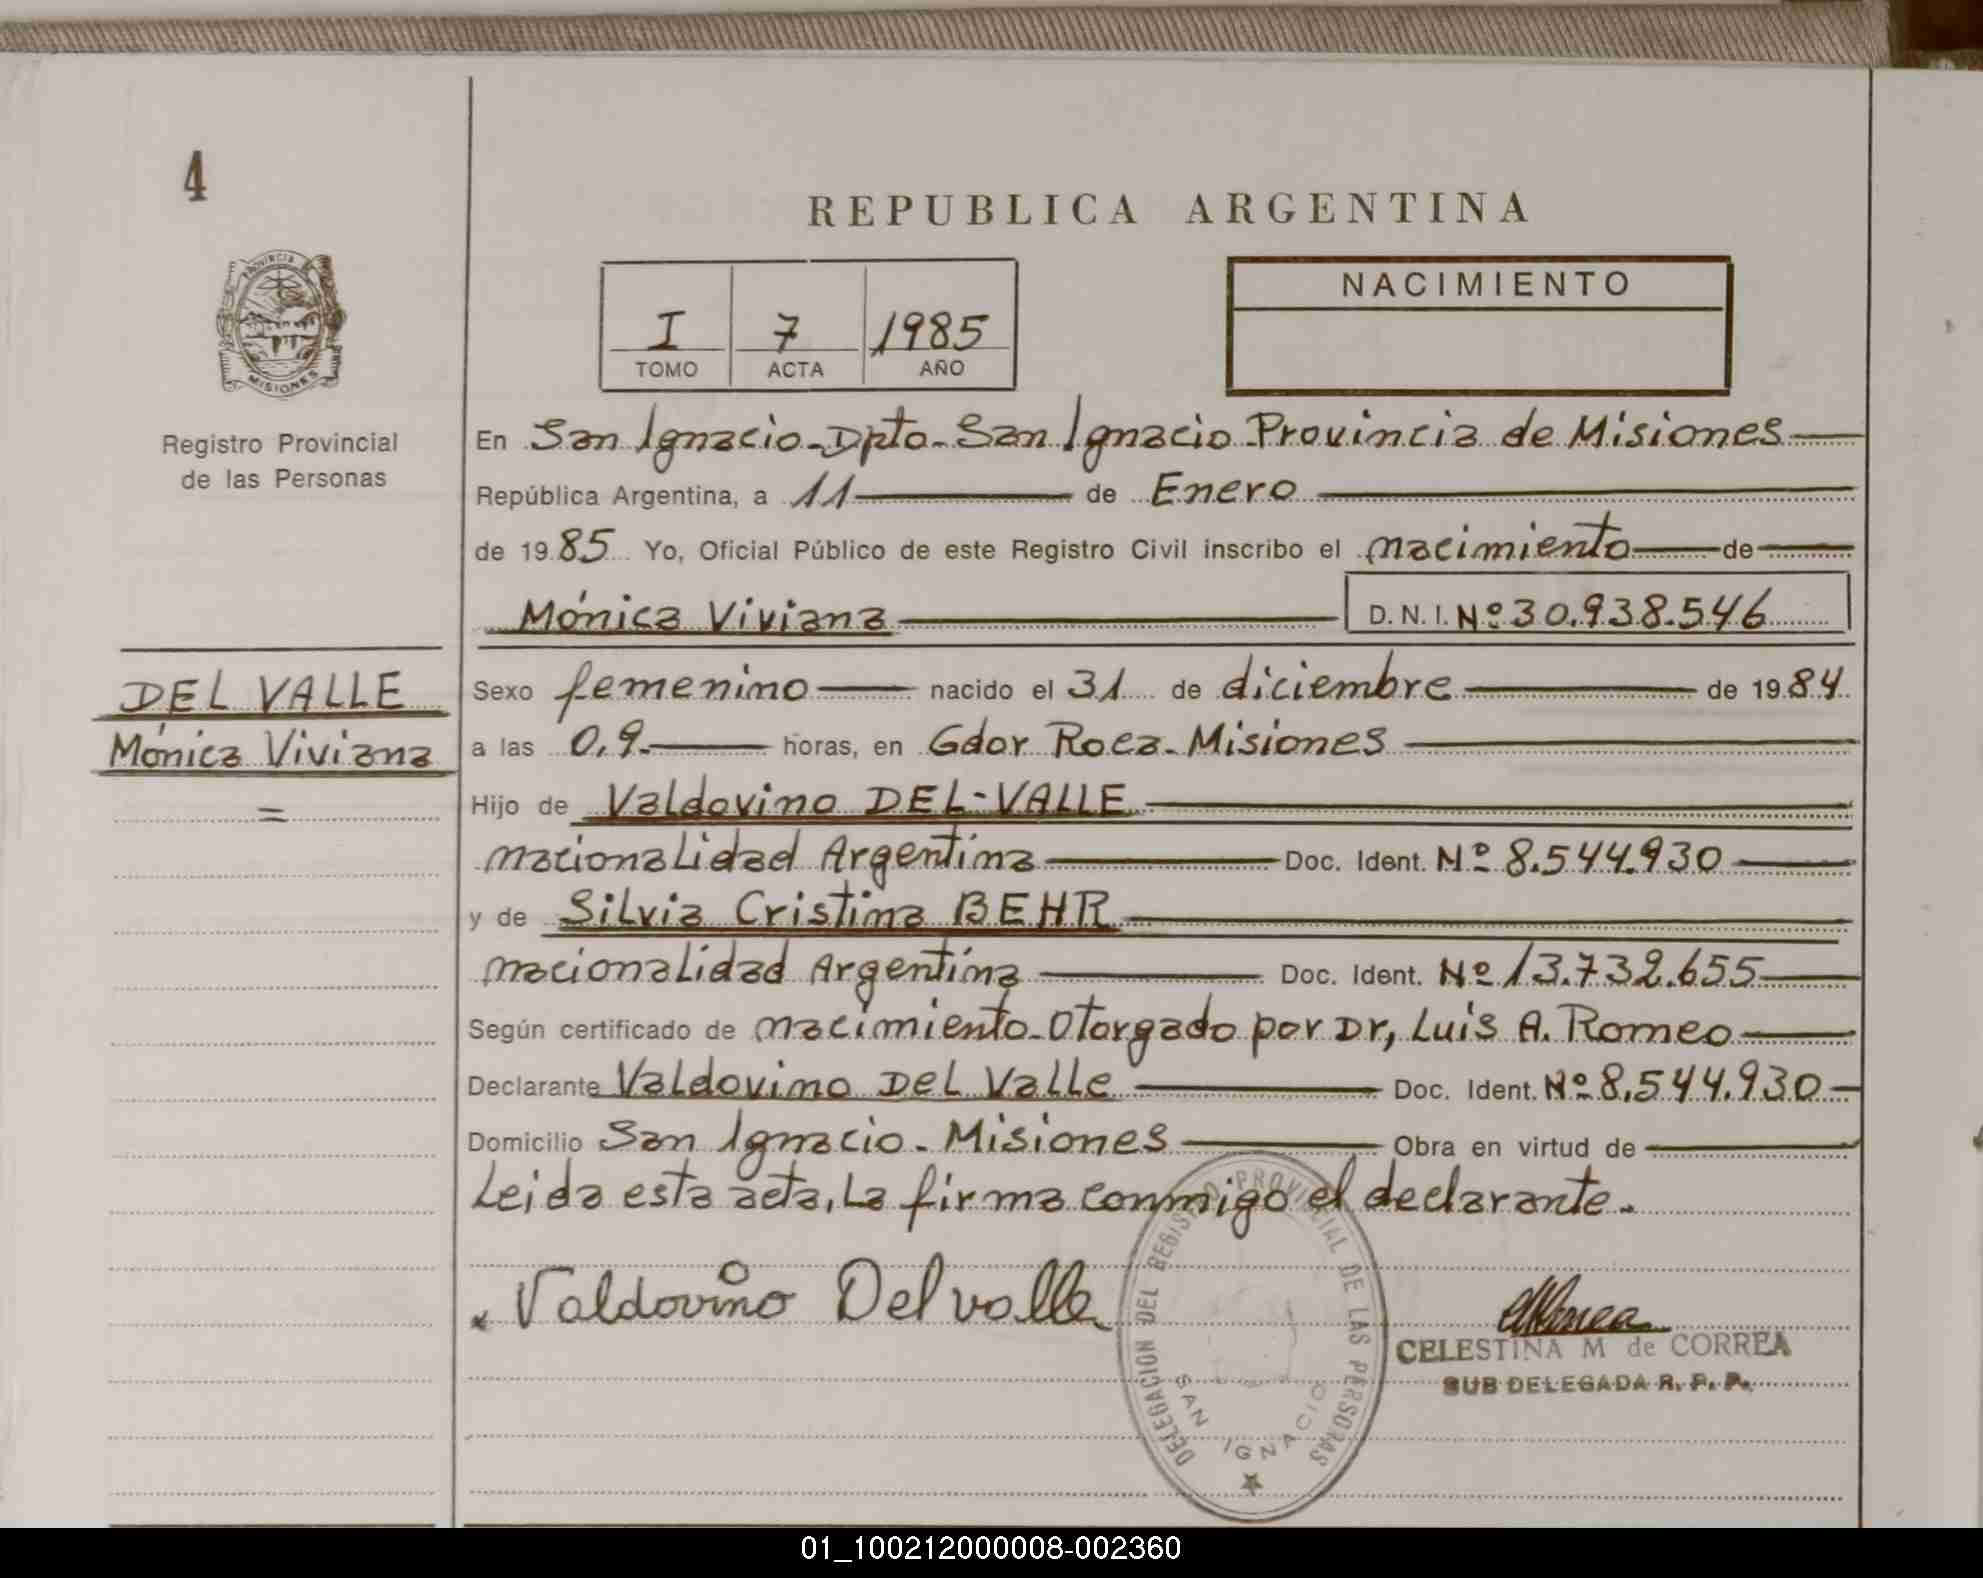 4
REPUBLICA ARGENTINA
PROVINCIA
MISIONES
Registro Provincial
de las Personas
I 7 1985
TOMO ACTA AÑO
NACIMIENTO
En San Ignacio-Dpto-San Ignacio Provincia de Misiones
República Argentina, a 11 de Enero
de 1985 Yo, Oficial Público de este Registro Civil inscribo el nacimiento de
Mónica Viviana D.N.I. Nº 30.938.546
DEL VALLE
Mónica Viviana
=
Sexo femenino nacido el 31 de diciembre de 1984
a las 0,9 horas, en Gdor Roca-Misiones
Hijo de Valdovino DEL-VALLE
nacionalidad Argentina Doc. Ident. Nº 8.544.930
y de Silvia Cristina BEHR
nacionalidad Argentina Doc. Ident. Nº 13.732.655
Según certificado de nacimiento-Otorgado por Dr, Luis A. Romeo
Declarante Valdovino Del Valle Doc. Ident. Nº 8,544.930
Domicilio San Ignacio-Misiones Obra en virtud de
Leida esta acta, la firma conmigo el declarante.
Valdovino Del valle
DELEGACION DEL REGISTRO PROVINCIAL DE LAS PERSONAS
SAN IGNACIO
CELESTINA M de CORREA
SUB DELEGADA R. P. P.
01_100212000008-002360